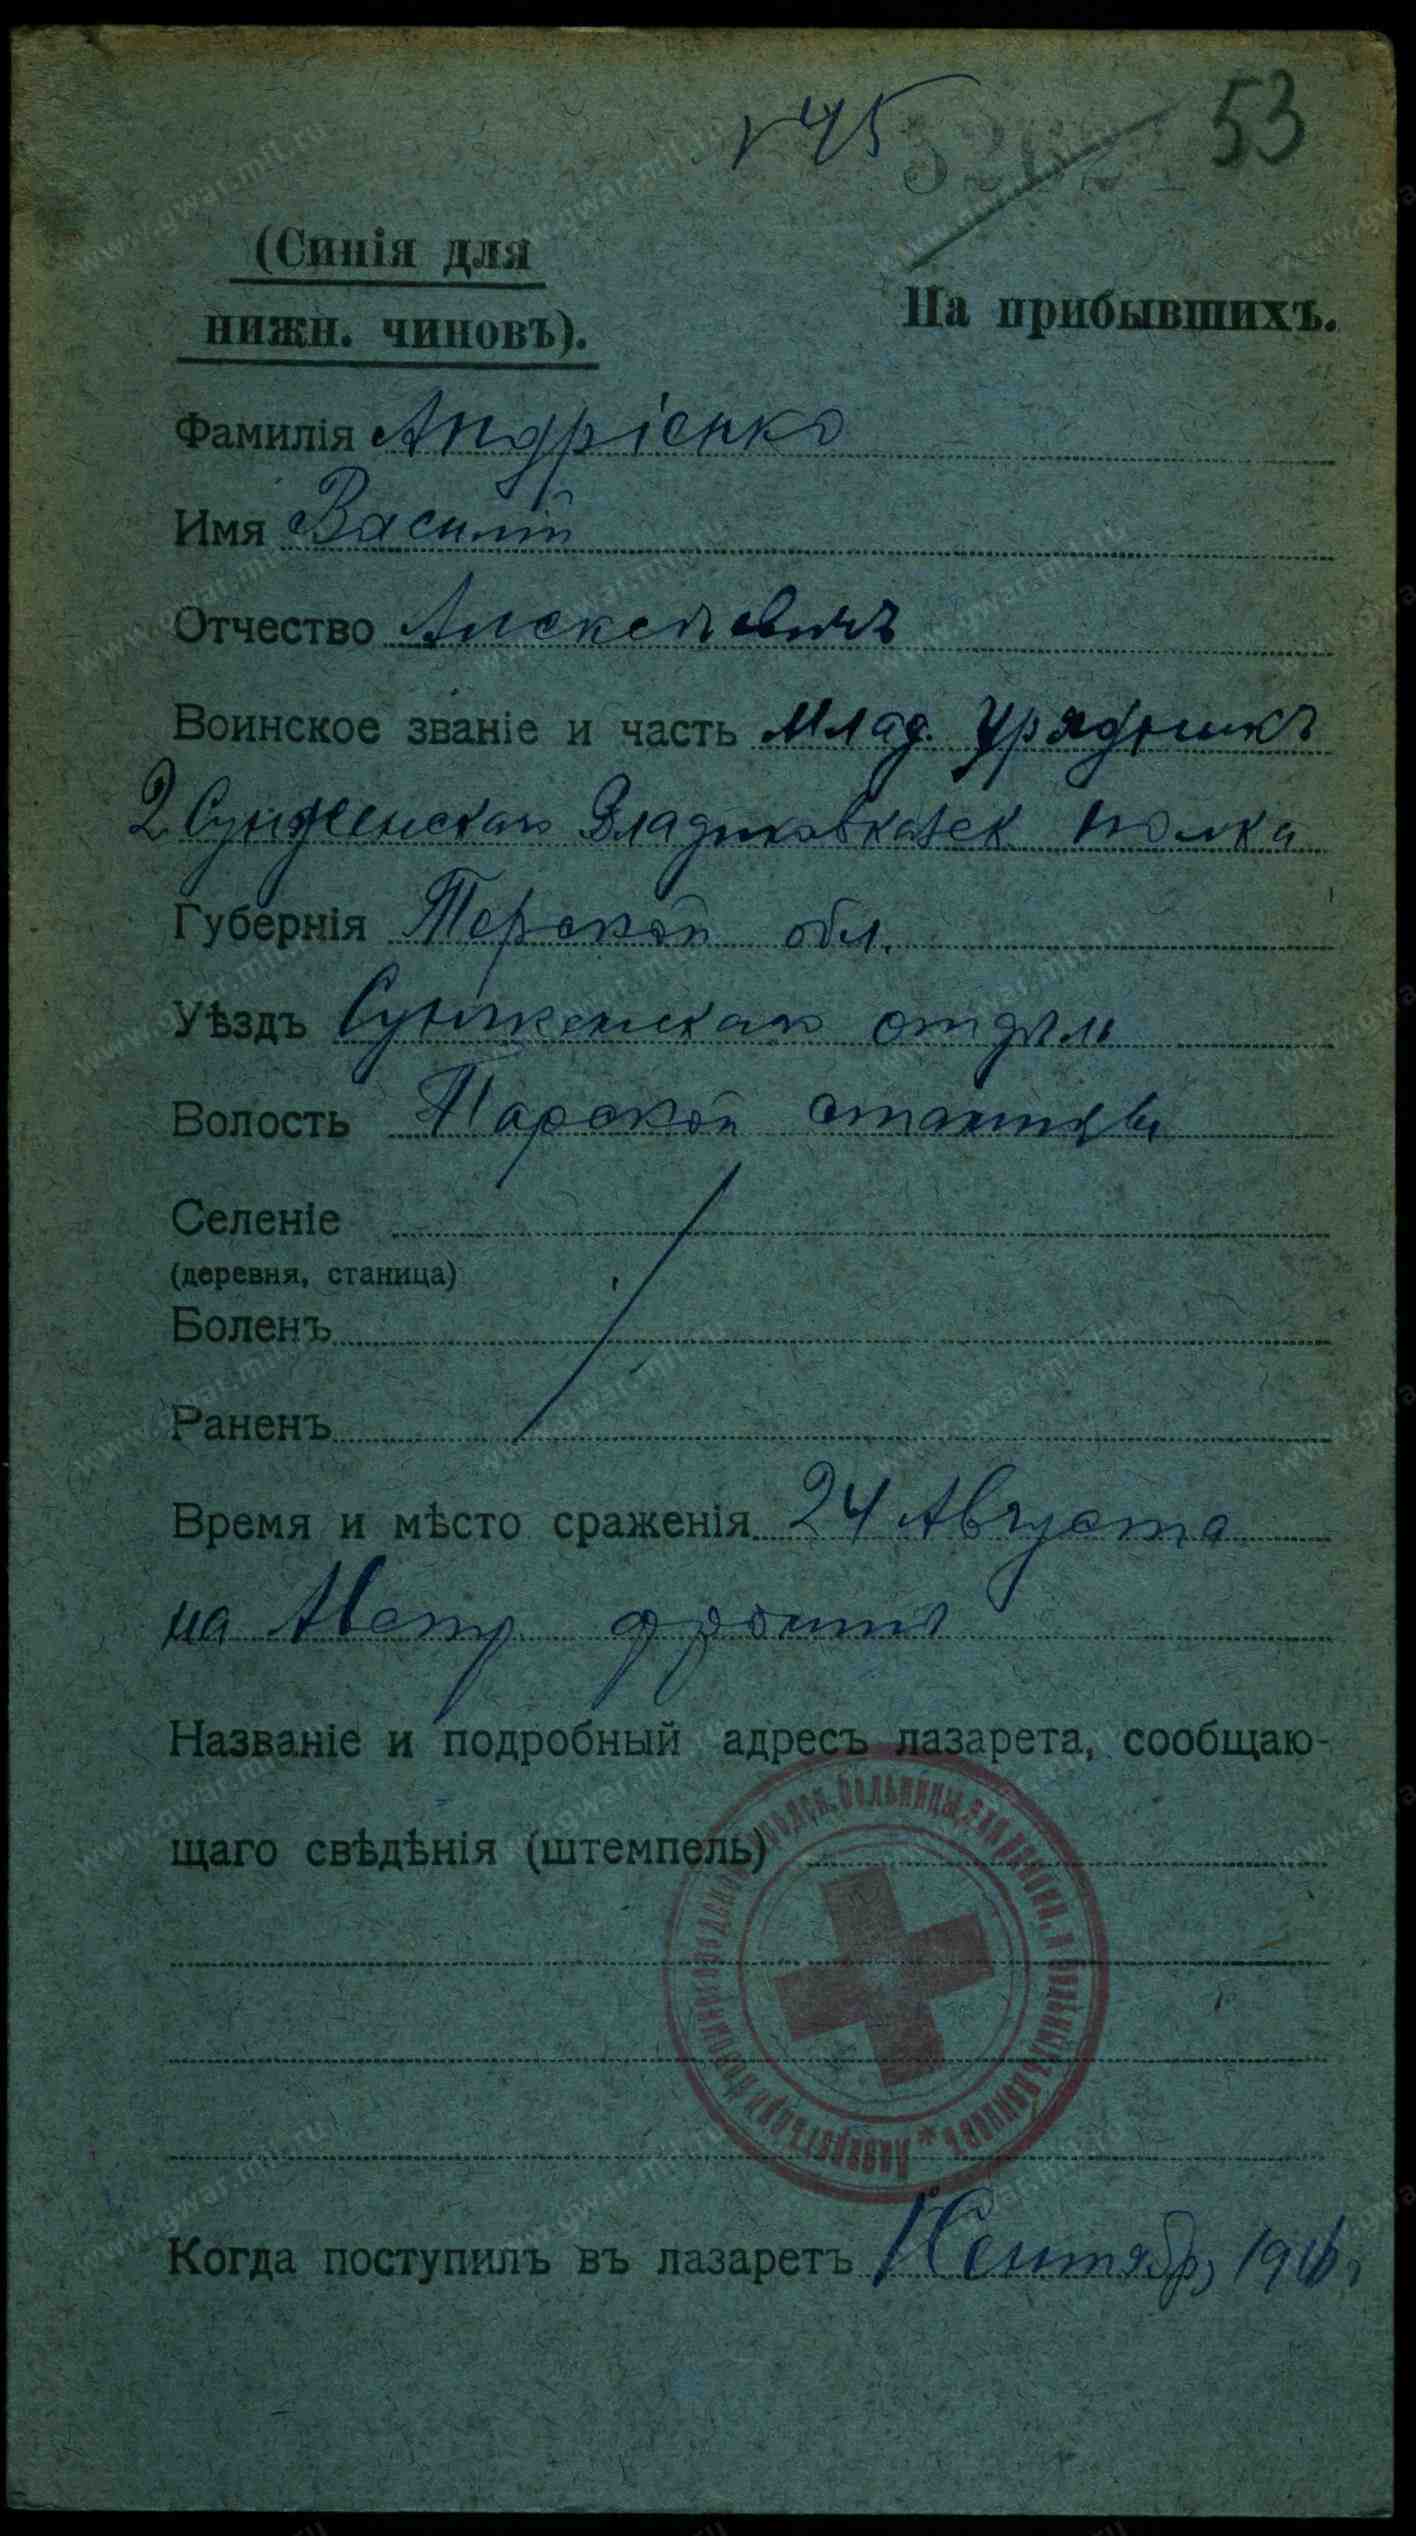 № 45 53
(Синія для
нижн. чиновъ).
На прибывшихъ.
Фамилія Андріенко
Имя Василій
Отчество Алексѣевичъ
Воинское званіе и часть Млад. Урядникъ
2 Сунженскаго Владикавказск полка
Губернія Терской обл.
Уѣздъ Сунженскаго отдѣла
Волость Тарской станицы
Селеніе
(деревня, станица)
Боленъ
Раненъ
Время и мѣсто сраженія 24 Августа
на Австр фронтѣ
Названіе и подробный адресъ лазарета, сообщаю-
щаго свѣдѣнія (штемпель)
Когда поступилъ въ лазаретъ 1 Сентябр, 1916 г
www.gwar.mil.ru